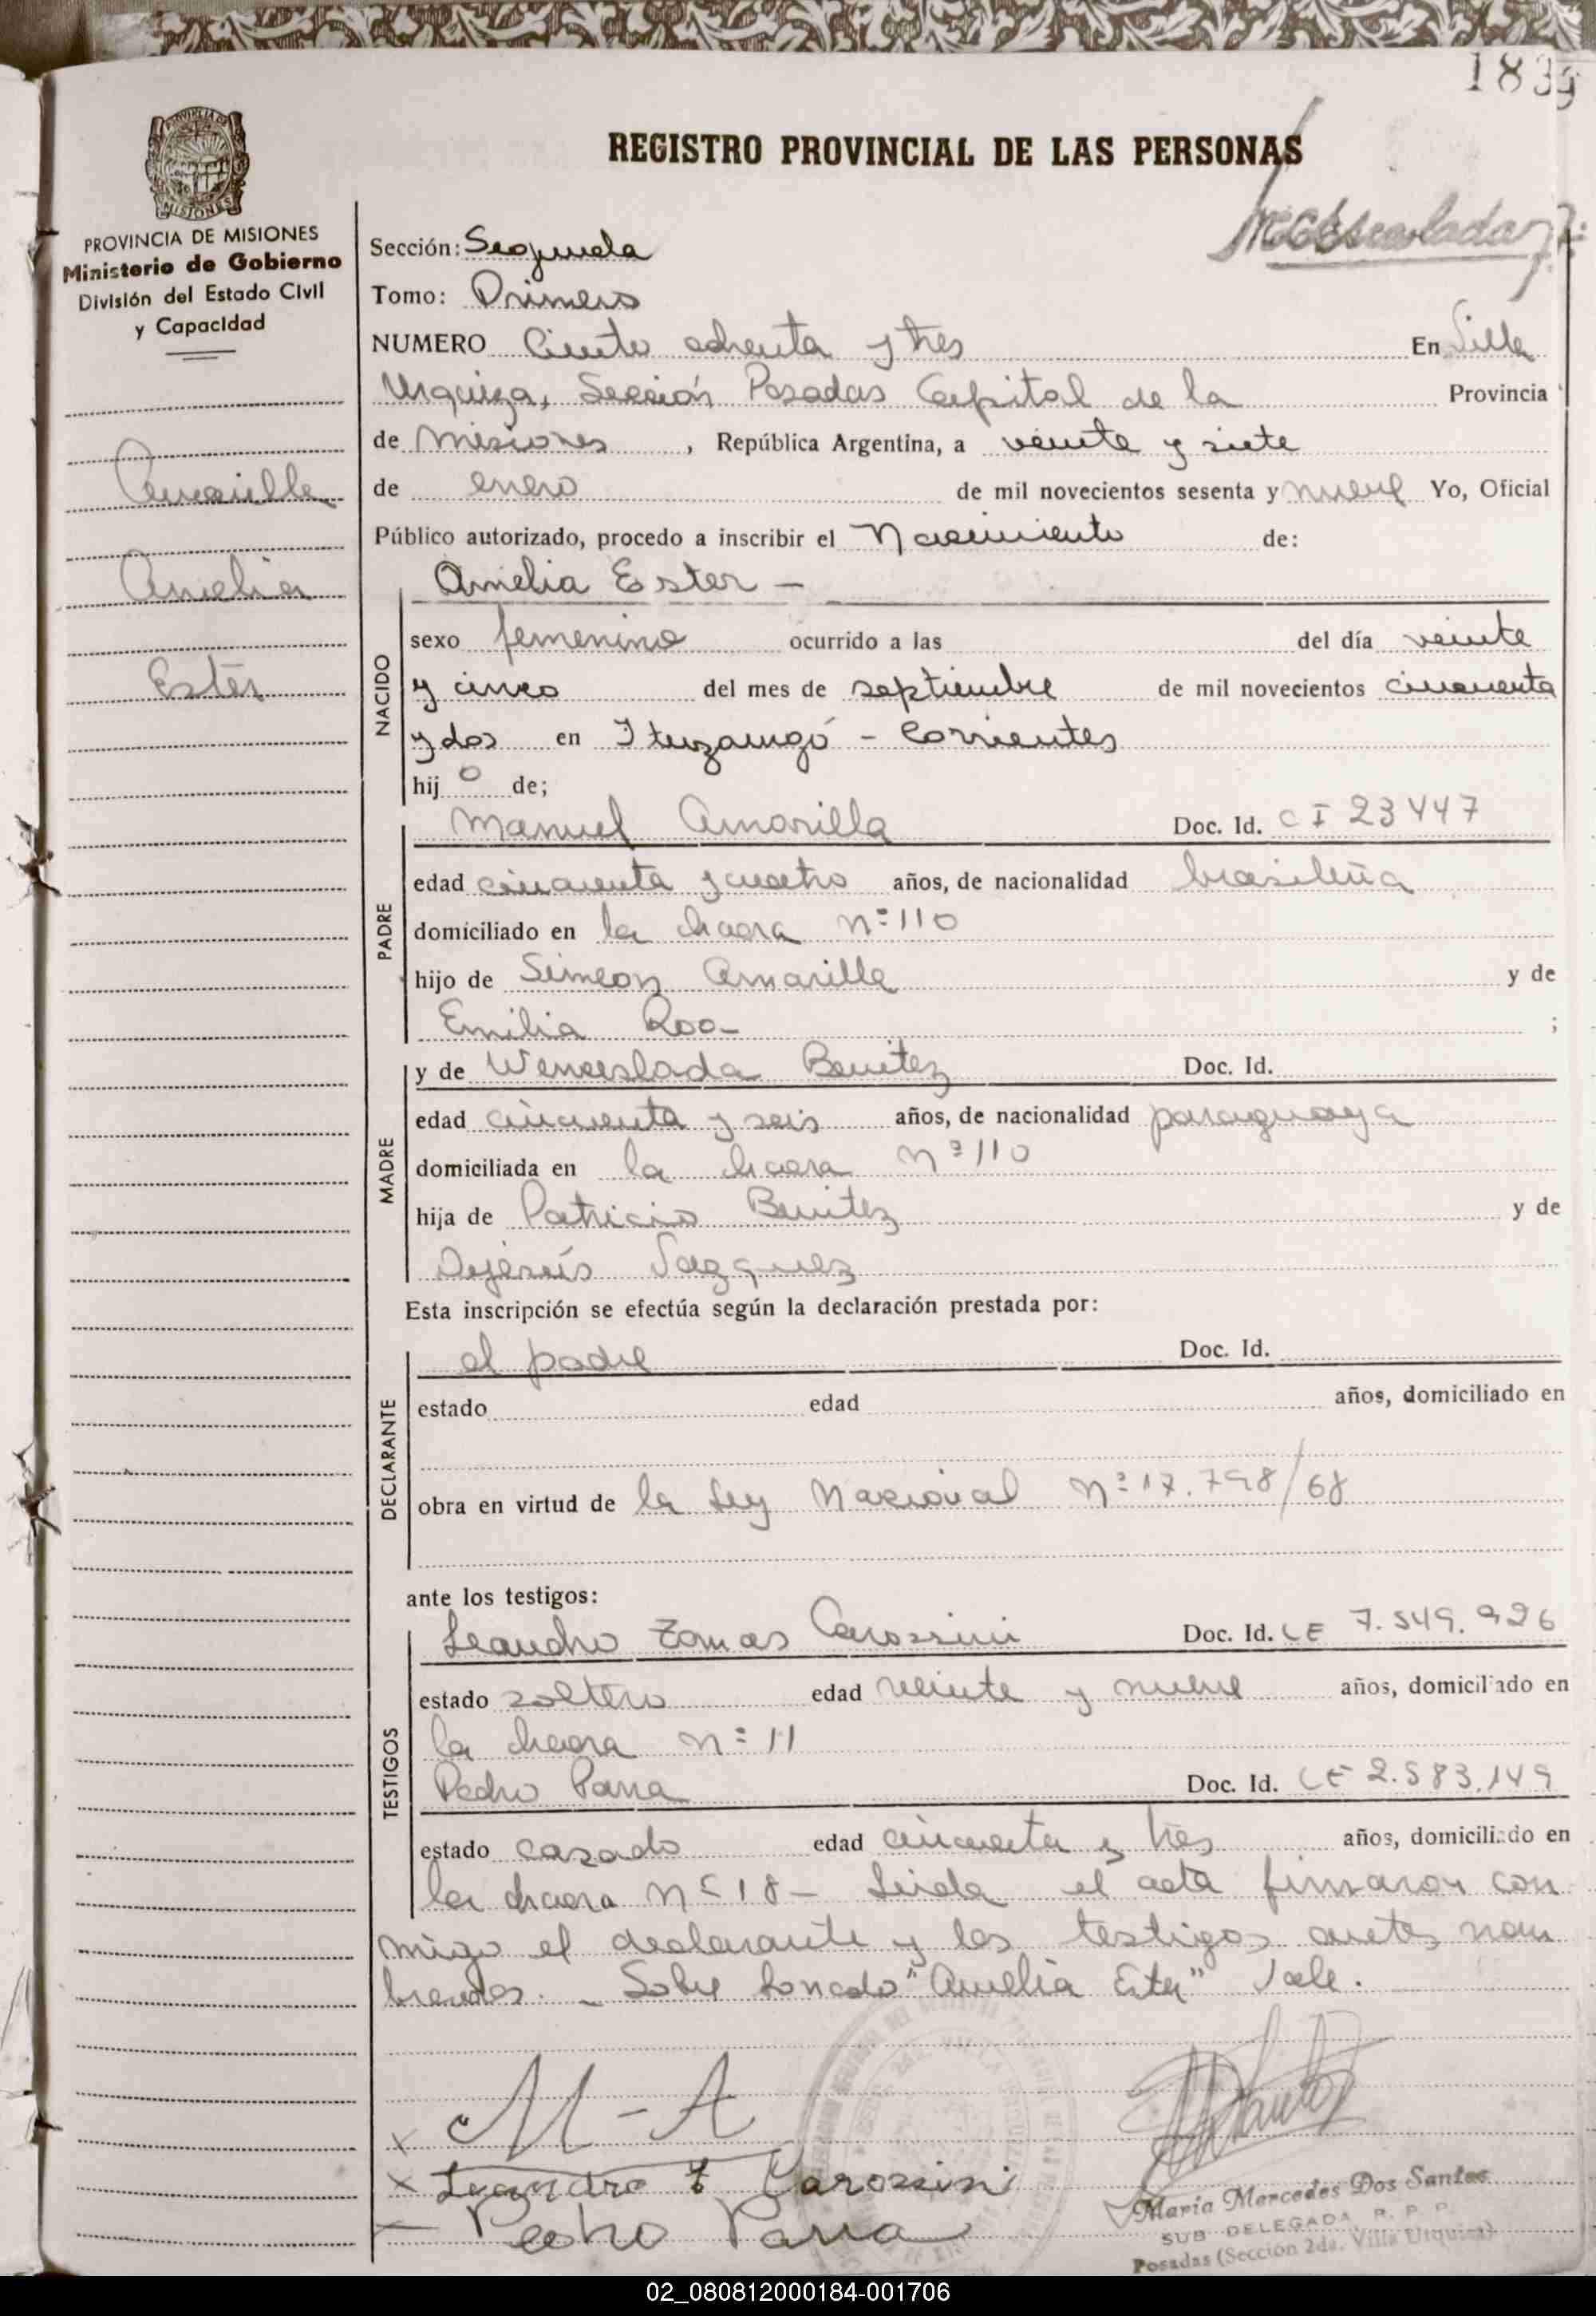 1839
REGISTRO PROVINCIAL DE LAS PERSONAS
MISIONES
PROVINCIA DE MISIONES
Ministerio de Gobierno
División del Estado Civil
y Capacidad
Amarilla
Amelia
Ester
Sección: Segunda
Tomo: Primero
NUMERO Ciento ochenta y tres En Villa
Urquiza, Sección Posadas Capital de la Provincia
de Misiones, República Argentina, a veinte y siete
de enero de mil novecientos sesenta y nueve Yo, Oficial
Público autorizado, procedo a inscribir el Nacimiento de:
Amelia Ester -
NACIDO
sexo femenino ocurrido a las del día veinte
y cinco del mes de septiembre de mil novecientos cincuenta
y dos en Ituzaingó - Corrientes
hijo de;
PADRE
Manuel Amarilla Doc. Id. CI 23447
edad cincuenta y cuatro años, de nacionalidad brasileña
domiciliado en la chacra Nº 110
hijo de Simeon Amarilla y de
Emilia Roa ;
MADRE
y de Wenceslada Benitez Doc. Id.
edad cincuenta y seis años, de nacionalidad paraguaya
domiciliada en la chacra Nº 110
hija de Patricio Benitez y de
Dejesús Vazquez
Esta inscripción se efectúa según la declaración prestada por:
DECLARANTE
el padre Doc. Id.
estado edad años, domiciliado en
obra en virtud de la Ley Nacional Nº 17.798/68
ante los testigos:
TESTIGOS
Leandro Tomas Carossini Doc. Id. LE 7.549.926
estado soltero edad veinte y nueve años, domiciliado en
la chacra Nº 11
Pedro Parra Doc. Id. LE 2.583.149
estado casado edad cincuenta y tres años, domiciliado en
la chacra Nº 18 - Leida el acta firmaron con
migo el declarante y los testigos antes nom
brados. - Sobre borrado "Amelia Ester" Vale.
M - A
Leandro T Carossini
Pedro Parra
María Mercedes Dos Santos
SUB DELEGADA R. P. P.
Posadas (Sección 2da. Villa Urquiza)
02_080812000184-001706